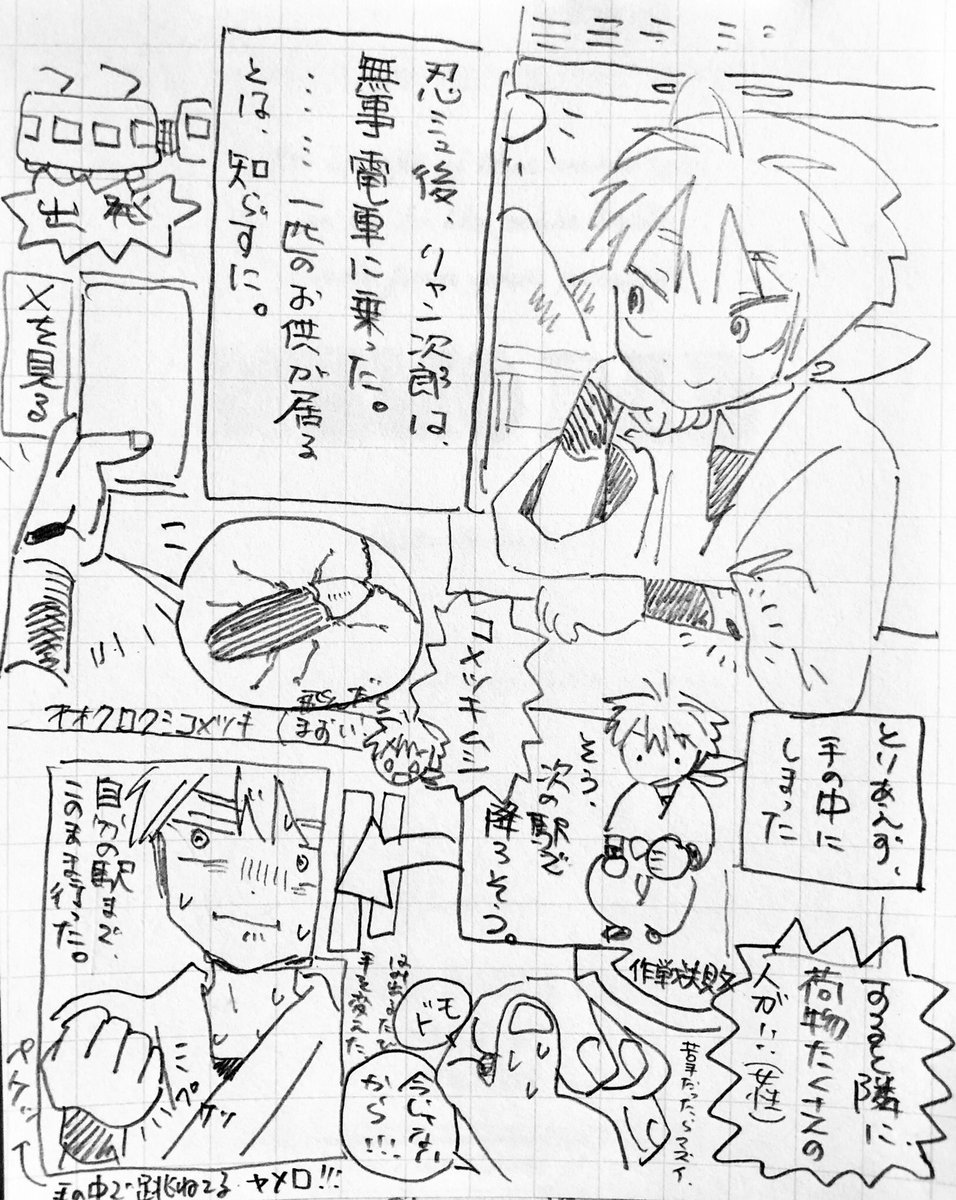 忍ミュ後 リャン次郎は、
無事電車に乗った。
……一匹のお供が居る
とは、知らずに。
出発
Xを見る
コメツキムシ
オオクロクシコメツキ
とりあえず、
手の中に
しまった
そう、
次の駅で
降ろそう。
すると隣に、
荷物たくさんの
人が…(女性)
作戦失敗
苦手だったらマズイ、
モット
今じゃない
から!!!
手を変えた、
自分の駅まで、
このまま行った。
ペケッ
ペケッ
手の中で跳ねてる ヤメロ!!!